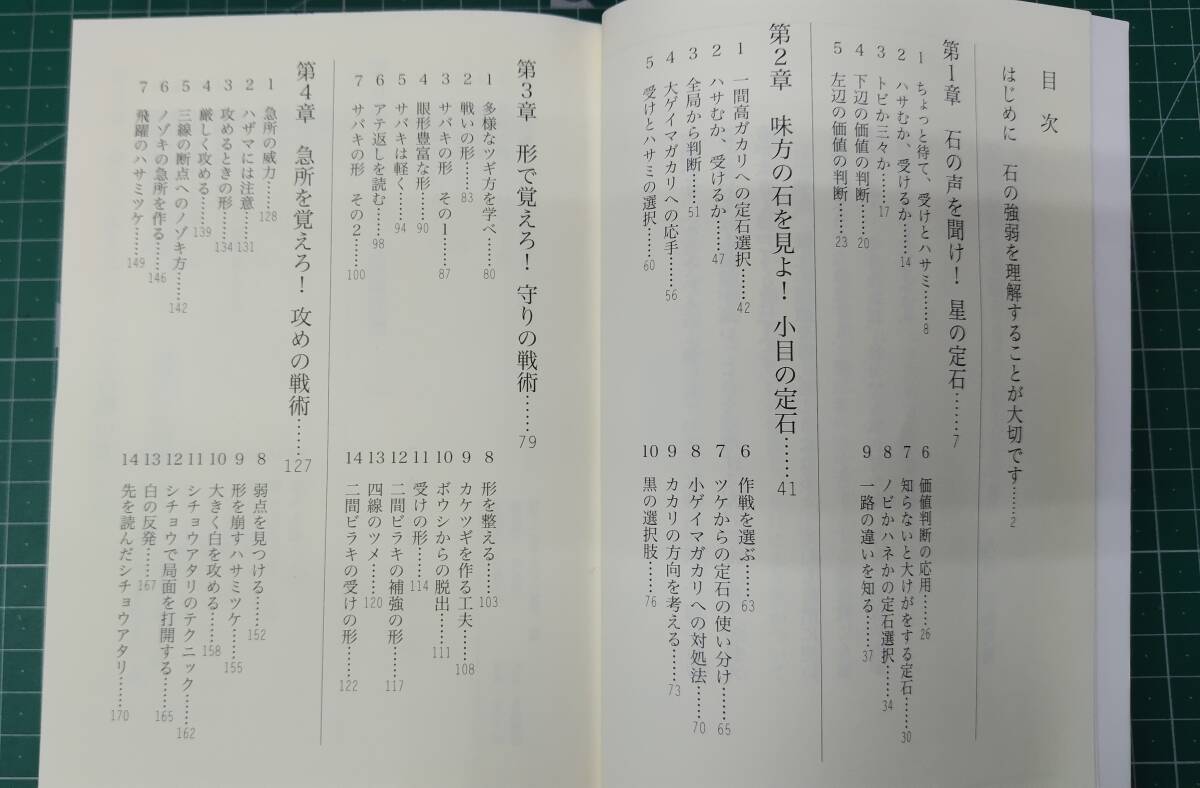 目次
はじめに　石の強弱を理解することが大切です……2
第1章　石の声を聞け！　星の定石……7
1　ちょっと待て、受けとハサミ……8
2　ハサむか、受けるか……14
3　トビか三々か……17
4　下辺の価値の判断……20
5　左辺の価値の判断……23
6　価値判断の応用……26
7　知らないと大けがをする定石……30
8　ノビかハネかの定石選択……34
9　一路の違いを知る……37
第2章　味方の石を見よ！　小目の定石……41
1　一間高ガカリへの定石選択……42
2　ハサむか、受けるか……47
3　全局から判断……51
4　大ゲイマガカリへの応手……56
5　受けとハサミの選択……60
6　作戦を選ぶ……63
7　ツケからの定石の使い分け……65
8　小ゲイマガカリへの対処法……70
9　カカリの方向を考える……73
10　黒の選択肢……76
第3章　形で覚えろ！　守りの戦術……79
1　多様なツギ方を学べ……80
2　戦いの形……83
3　サバキの形　その1……87
4　眼形豊富な形……90
5　サバキは軽く……94
6　アテ返しを読む……98
7　サバキの形　その2……100
8　形を整える……103
9　カケツギを作る工夫……108
10　ボウシからの脱出……111
11　受けの形……114
12　二間ビラキの補強の形……117
13　四線のツメ……120
14　二間ビラキの受けの形……122
第4章　急所を覚えろ！　攻めの戦術……127
1　急所の威力……128
2　ハザマには注意……131
3　攻めるときの形……134
4　厳しく攻める……139
5　三線の断点へのノゾキ方……142
6　ノゾキの急所を作る……146
7　飛躍のハサミツケ……149
8　弱点を見つける……152
9　形を崩すハサミツケ……155
10　大きく白を攻める……158
11　シチョウアタリのテクニック……162
12　シチョウで局面を打開する……165
13　白の反発……167
14　先を読んだシチョウアタリ……170